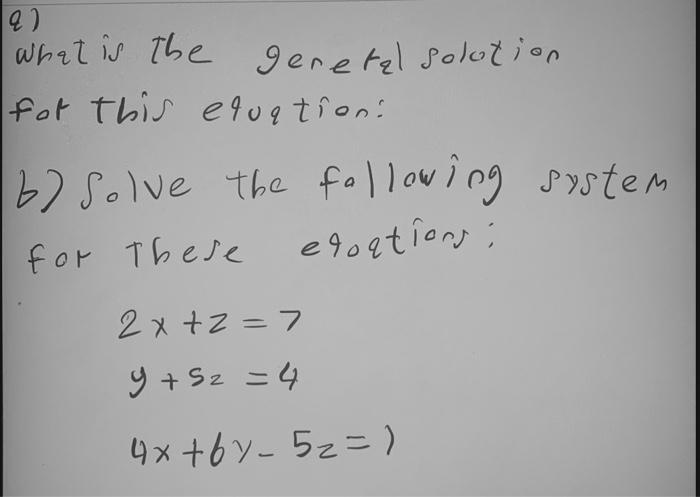 a)
What is the general solution
for this equation:
b) Solve the following system
for These equations:
2x + z = 7
y + 5z = 4
4x + 6y - 5z = 1